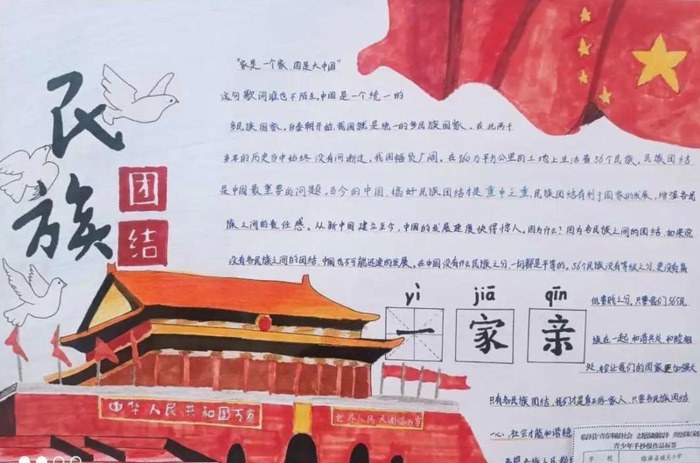 民族
团结
"家是一个家,国是大中国"
这句歌词谁也不陌生,中国是一个统一的
多民族国家,自秦朝开始,我国就是统一的多民族国家,在此两千
多年的历史当中始终没有间断过,我国幅员广阔,在960万平方公里的土地上生活着56个民族,民族团结
是中国最重要的问题,至今的中国,搞好民族团结才是重中之重,民族团结有利于国家的发展,增强各民
族之间的责任感,从新中国建立至今,中国的发展速度快得惊人,因为什么?因为各民族之间的团结,如果说
没有各民族之间的团结,中国也不可能迅速的发展,在中国没有什么民族之分,一切都是平等的,56个民族没有等级之分,更没有高
低贵贱之分,只要我们56个民
族在一起和谐共处和睦相
处,才让我们的国家更加强大
只有各民族团结,我们才是真正的家人,只要各民族团结
一心,社会才能和谐稳
yì jiā qīn
一家亲
中华人民共和国万岁
世界人民大团结万岁
青少年手抄报作品标签
学校